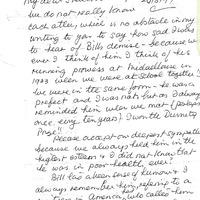 My dear
we do not really know
each other, which is no obstacle in my
writing to you to say how sad I was
to hear of Bill's demise - because we
ever I think of him I think of his
running prowess at
1943 when we were at school together!
we were in the same form - he was a
prefect and I was not: but as I always
reminded him when we met (perhaps
once every ten years) I won the Divinity
Prize!!
Please accept our deepest sympathy
because we always held him in the
highest esteem & I did not know that
he was in poor health, ever!
Bill had a keen sense of humour & I
always remember him referring to a
in America, who called him